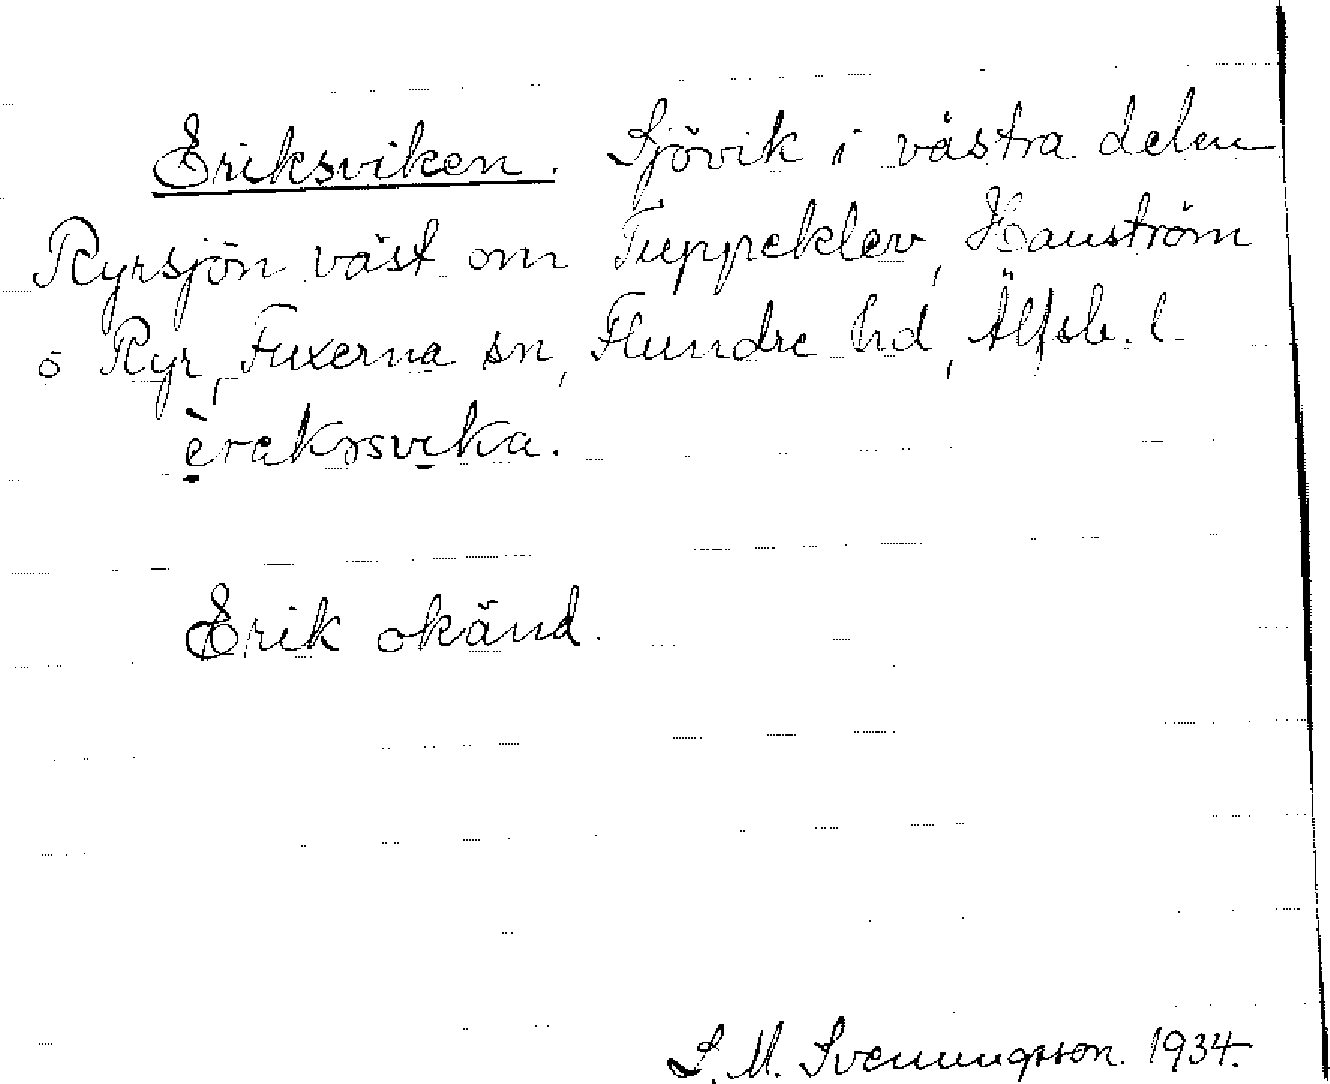 Eriksviken. Sjövik i västra delen
Ryrsjön väst om Tuppeklev, Hanström
o Ryr, Fuxerna sn, Flundre hd, Älfsb. l
èrəksvika.
Erik okänd.
S. M. Svenungsson 1934.